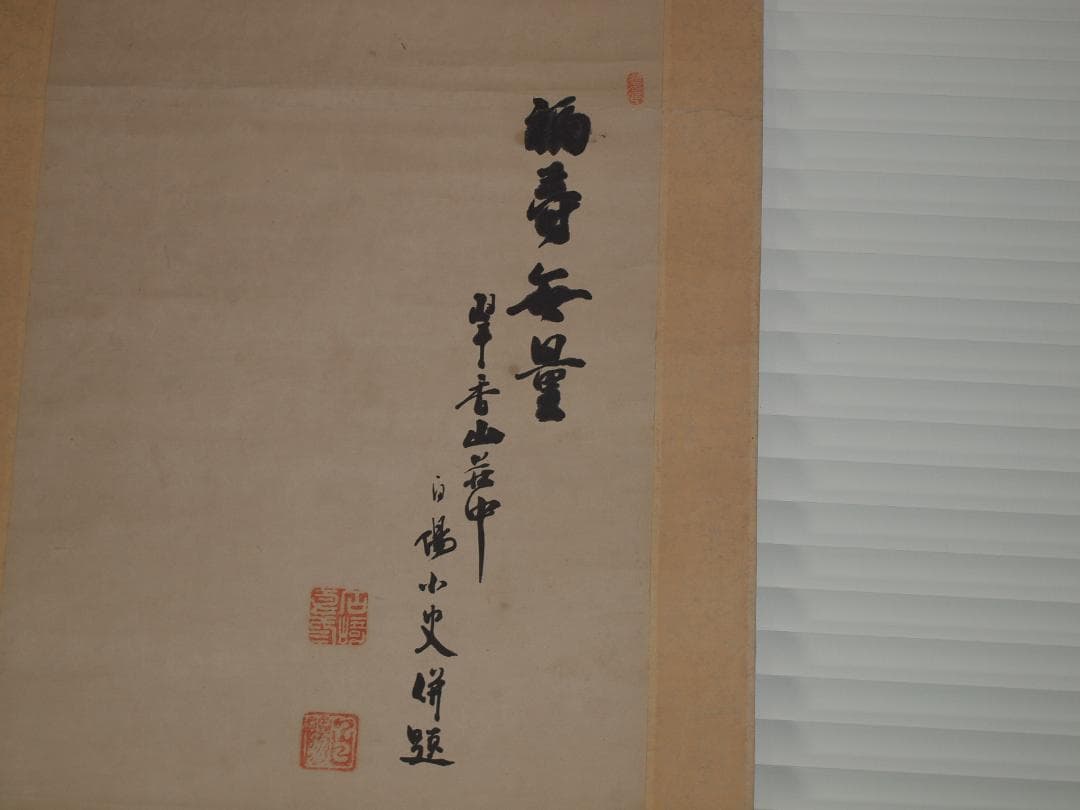 福壽無量
翠香山荘中
白陽小史併題